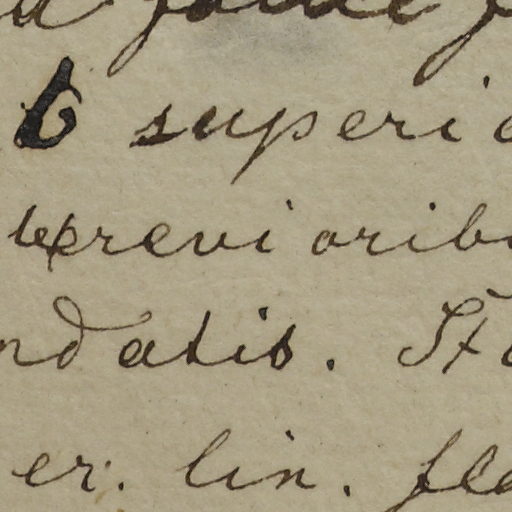 6 superi
brevi orib
ndatis. St
er. lin. fl